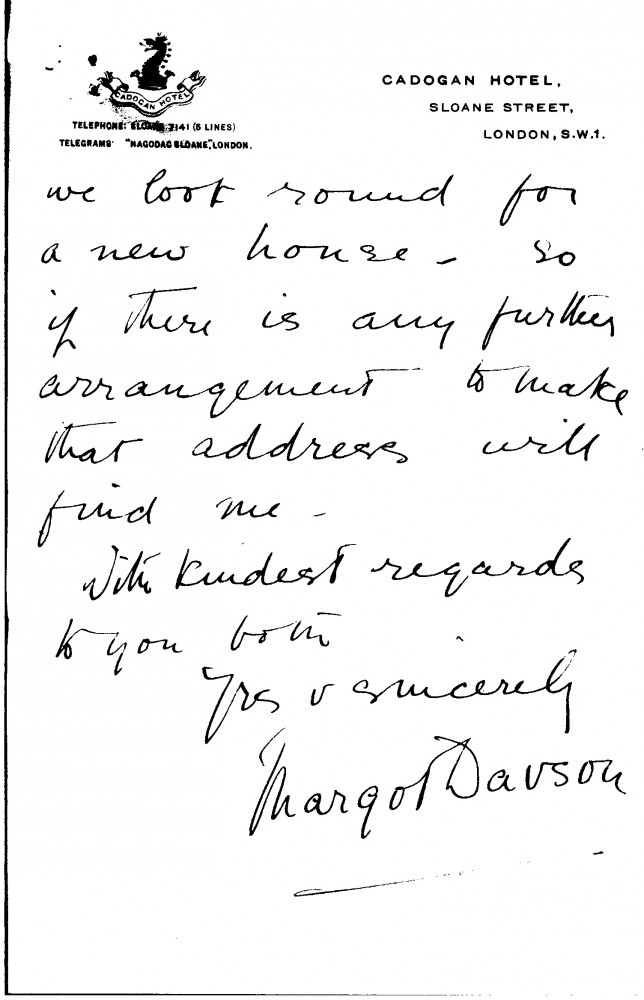 CADOGAN HOTEL
CADOGAN HOTEL,
SLOANE STREET,
LONDON, S.W.1.
TELEPHONE: SLOANE 7141 (5 LINES)
TELEGRAMS "NAGODAC SLOANE", LONDON.
we look round for
a new house – so
if there is any further
arrangement to make
that address will
find me –
With kindest regards
to you both
Yrs v sincerely
Margot Davson